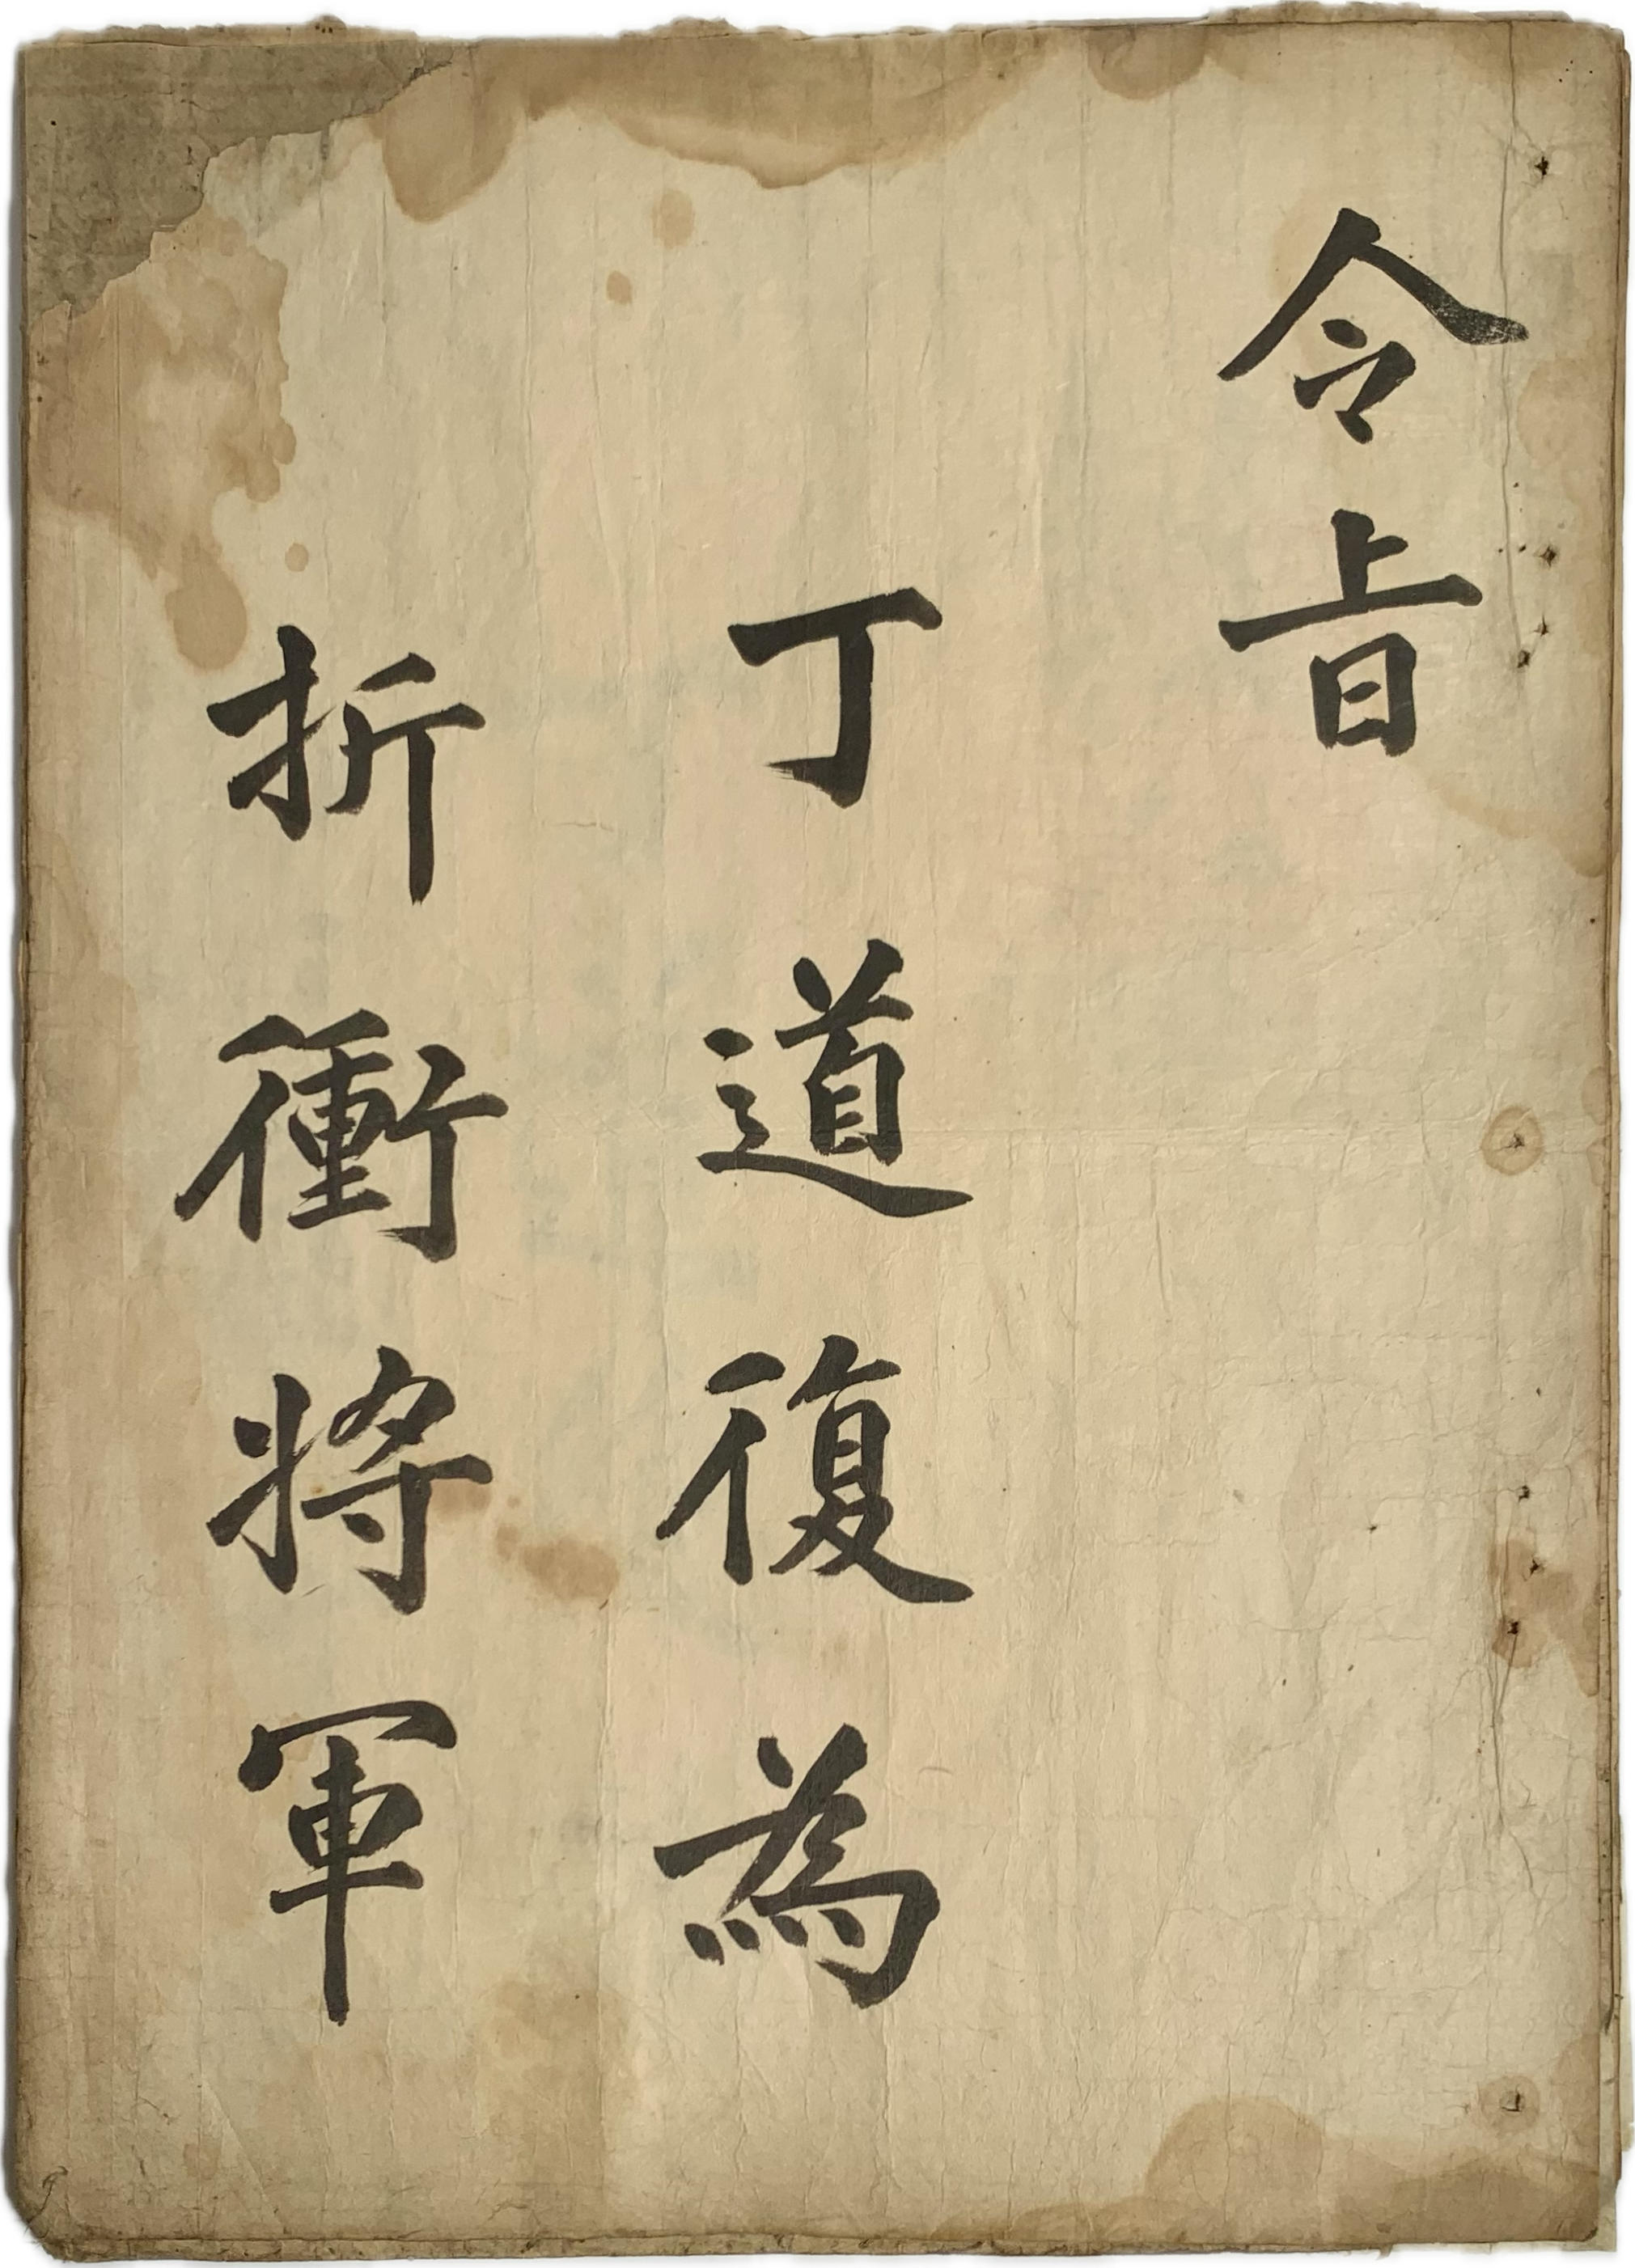 令旨
丁道復為
折衝將軍